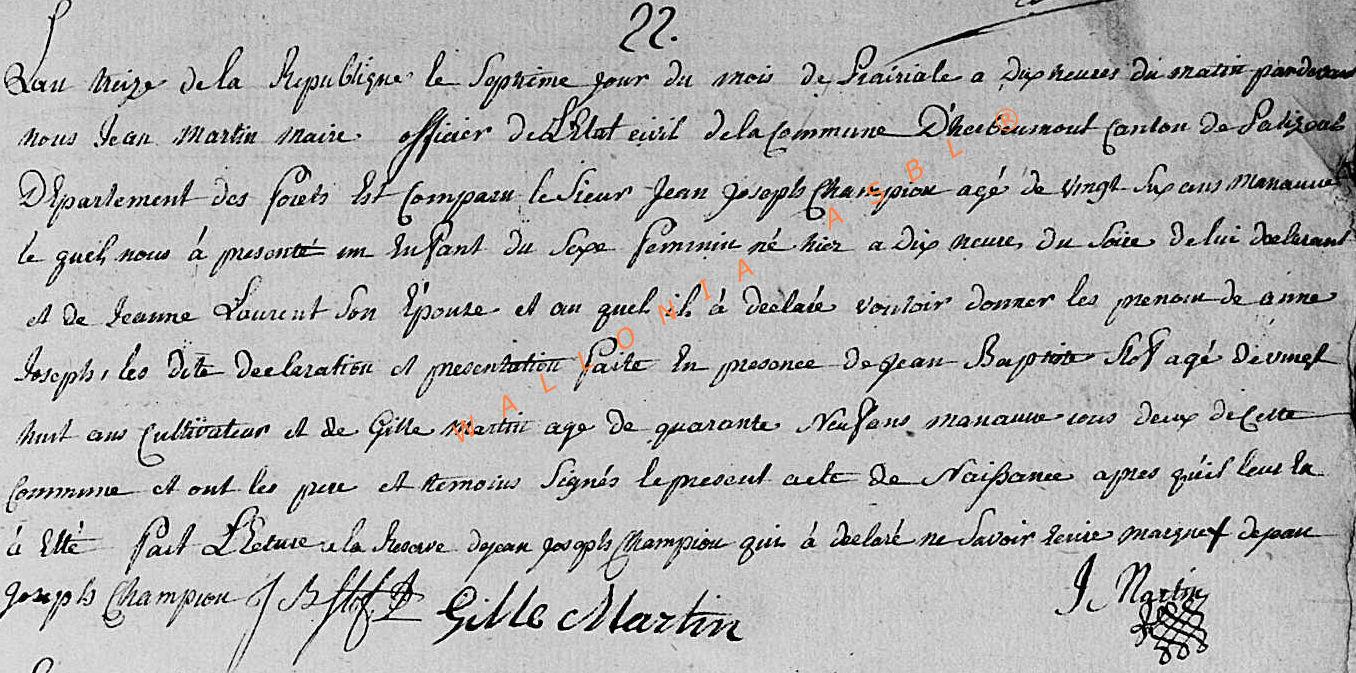 22.
L'an treize de la Republique le Septieme jour du mois de Prairiale a Dix heures du matin pardevant
nous Jean Martin maire officier de L'Etat civil de la Commune D'herbeumont Canton de Palizeul
DEpartement des forets Est Comparu le Sieur Jean Joseph Champion agé de vingt Six ans Manauvre
le quel nous à presenté un Enfant du Sexe feminin né hier a Dix heure du Soire de lui declarant
et de Jeanne Laurent Son Epouse et au quel il à declaré vouloir donner les prenom de anne
Joseph, les dite declaration et presentation faite En presence de Jean Baptiste agé de vingt
huit ans Cultivateur et de Gille Martin age de quarante Neuf ans manauvre tous deux de Cette
Commune et ont les pere et temoins Signés le present acte de Naissance apres qu'il leur En
à Etté fait L'Ecture a la Reserve de jean Joseph Champion qui à declaré ne Savoir Ecrire marque + de jean
Joseph Champion J B Gille Martin J Martin
WALLONIA ASBL ®